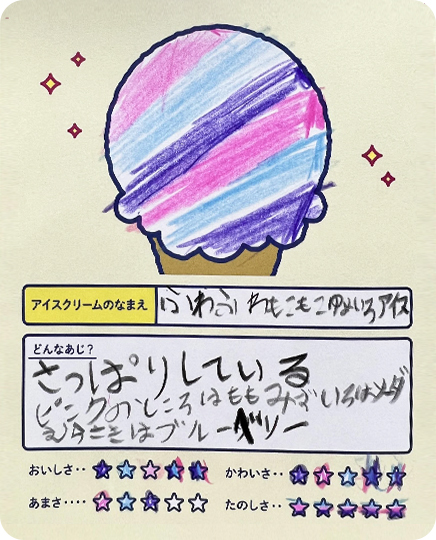 アイスクリームのなまえ
ふわふわもこもこゆめいろアイス
どんなあじ?
さっぱりしている
ピンクのところはももみずいろはソーダ
むらさきはブルーベリー
おいしさ‥
かわいさ‥
あまさ‥‥
たのしさ‥